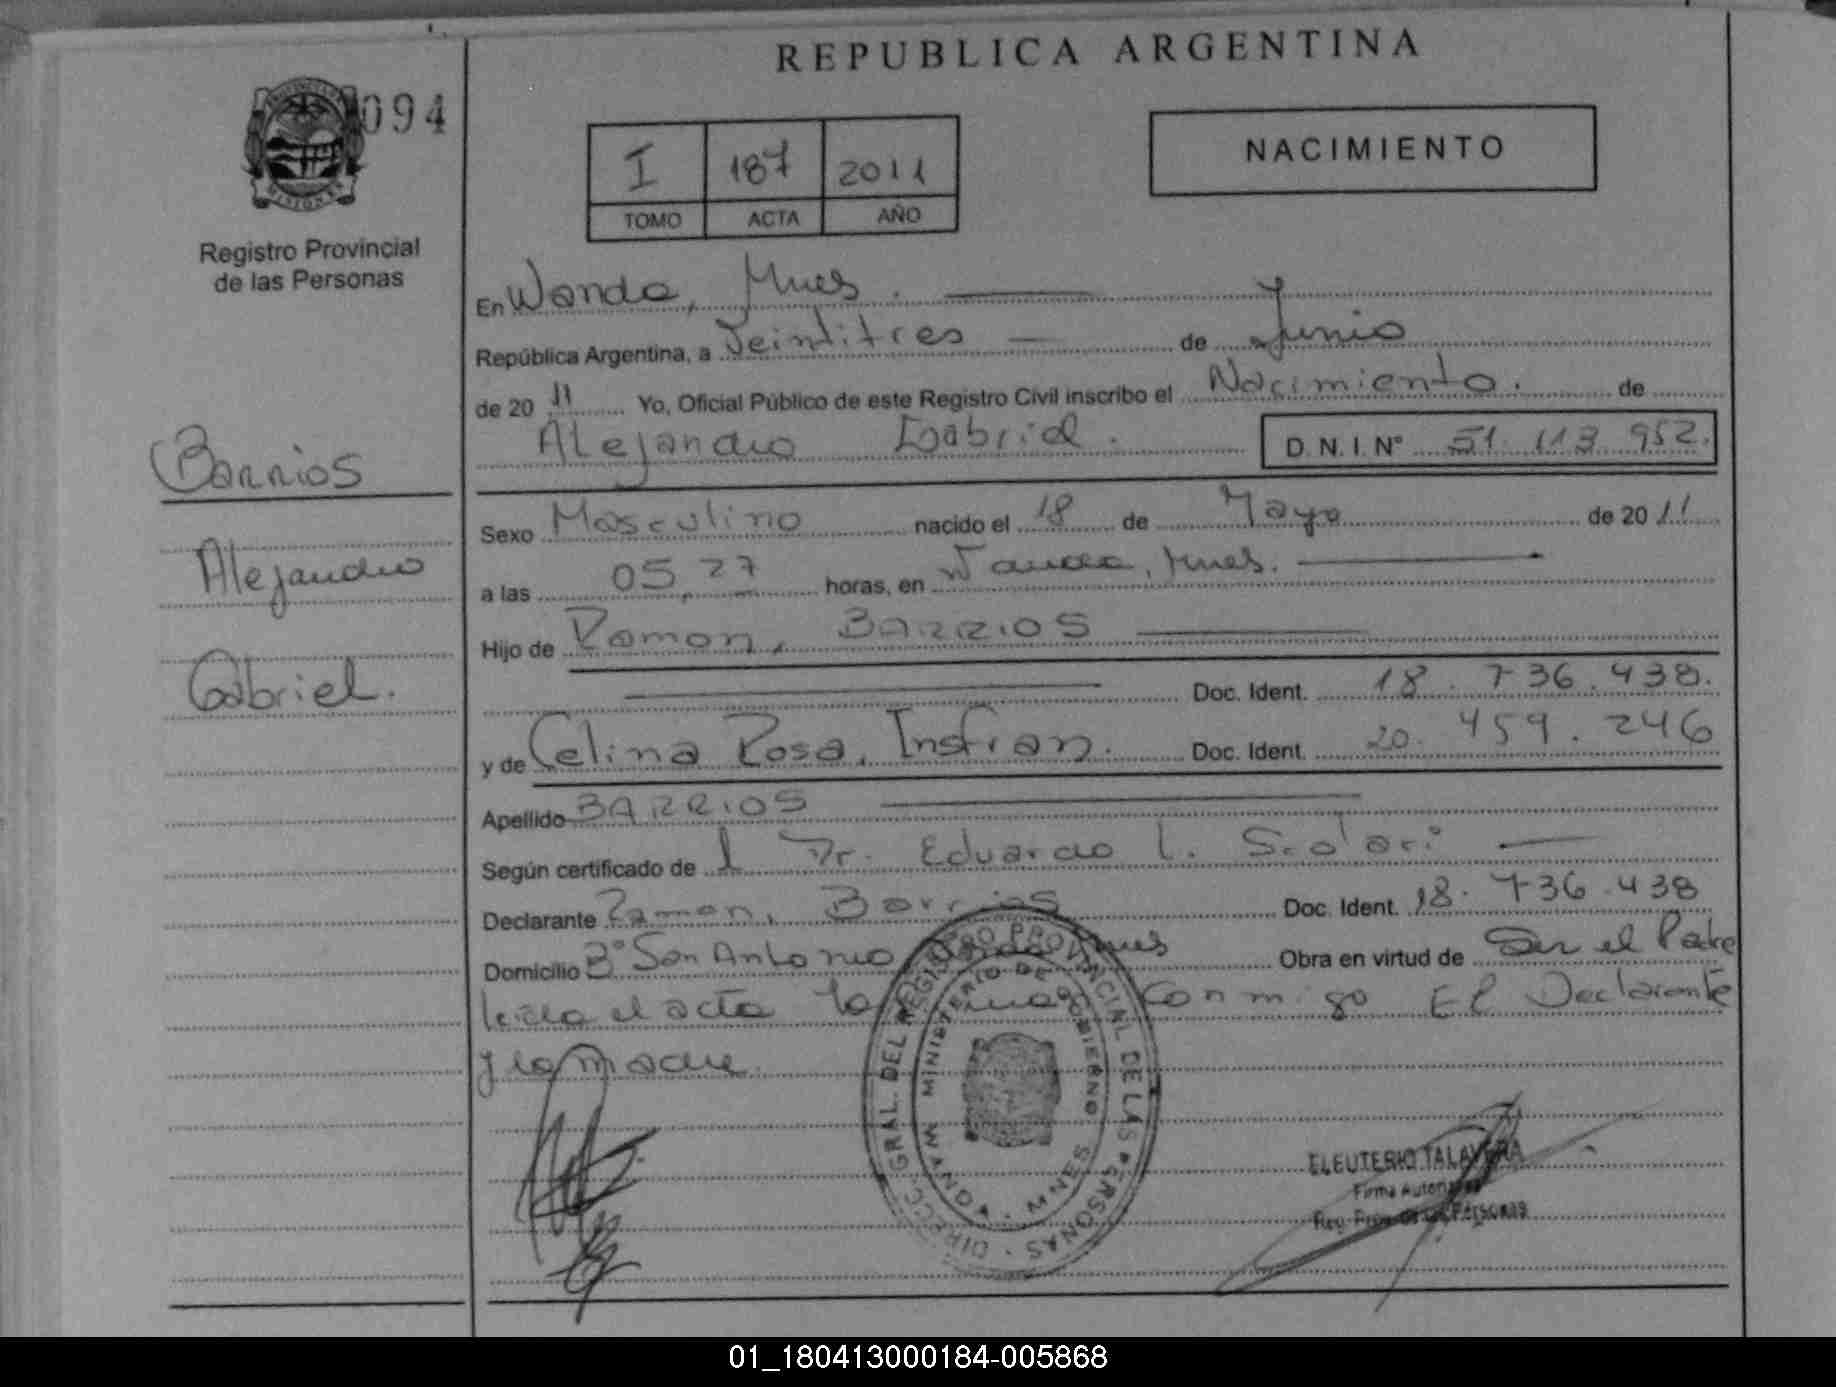 094
Registro Provincial
de las Personas
Barrios
Alejandro
Gabriel.
REPUBLICA ARGENTINA
I 187 2011
TOMO ACTA AÑO
NACIMIENTO
En Wanda, Mnes.
República Argentina, a Veintitres de Junio
de 20 11 Yo, Oficial Público de este Registro Civil inscribo el Nacimiento. de
Alejandro Gabriel. D. N. I. N° 51. 113 952.
Sexo Masculino nacido el 18 de Mayo de 2011
a las 05,27 horas, en Wanda, Mnes.
Hijo de Ramon, BARRIOS
Doc. Ident. 18. 736.438.
y de Celina Rosa, Insfran. Doc. Ident. 20. 459. 246
Apellido BARRIOS
Según certificado de l Dr. Eduardo L. Scolari
Declarante Ramon, Barrios Doc. Ident. 18. 736.438
Domicilio B° San Antonio Mnes Obra en virtud de Ser el Padre
leida el acta la conmigo El Declarante
y la madre.
DIRECC. GRAL. DEL REGISTRO PROVINCIAL DE LAS PERSONAS
MINISTERIO DE GOBIERNO
WANDA - MNES
ELEUTERIO TALAVERA
Firma Autorizada
Reg. Prov. de las Personas
01_180413000184-005868